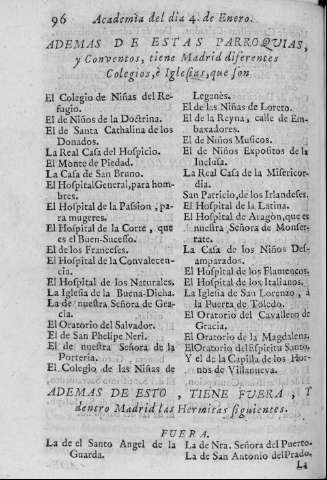 96 Academia del dia 4. de Enero.
ADEMAS DE ESTAS PARROQUIAS,
y Conventos, tiene Madrid diferentes
Colegios, è Iglesias, que son
El Colegio de Niñas del Re-
fugio.
El de Niños de la Doctrina.
El de Santa Cathalina de los
Donados.
La Real Casa del Hospicio.
El Monte de Piedad.
La Casa de San Bruno.
El Hospital General, para hom-
bres.
El Hospital de la Passion, pa-
ra mugeres.
El Hospital de la Corte, que
es el Buen-Sucesso.
El de los Franceses.
El Hospital de la Convalecen-
cia.
El Hospital de los Naturales.
La Iglesia de la Buena-Dicha.
La de nuestra Señora de Gra-
cia.
El Oratorio del Salvador.
El de San Phelipe Neri.
El de nuestra Señora de la
Porteria.
El Colegio de las Niñas de
Leganès.
El de las Niñas de Loreto.
El de la Reyna, calle de Em-
baxadores.
El de Niños Musicos.
El de Niños Expositos de la
Inclusa.
La Real Casa de la Misericor-
dia.
San Patricio, de los Irlandeses.
El Hospital de la Latina.
El Hospital de Aragòn, que es
nuestra Señora de Monser-
rate.
La Casa de los Niños Des-
amparados.
El Hospital de los Flamencos.
El Hospital de los Italianos.
La Iglesia de San Lorenzo, à
la Puerta de Toledo.
El Oratorio del Cavallero de
Gracia.
El Oratorio de la Magdalena.
El Oratorio del Espiritu Santo.
Y el de la Capilla de los Hor-
nos de Villanueva.
ADEMAS DE ESTO, TIENE FUERA, Y
dentro Madrid las Hermitas siguientes.
FUERA.
La de el Santo Angel de la
Guarda.
La de Nra. Señora del Puerto.
La de San Antonio del Prado.
La